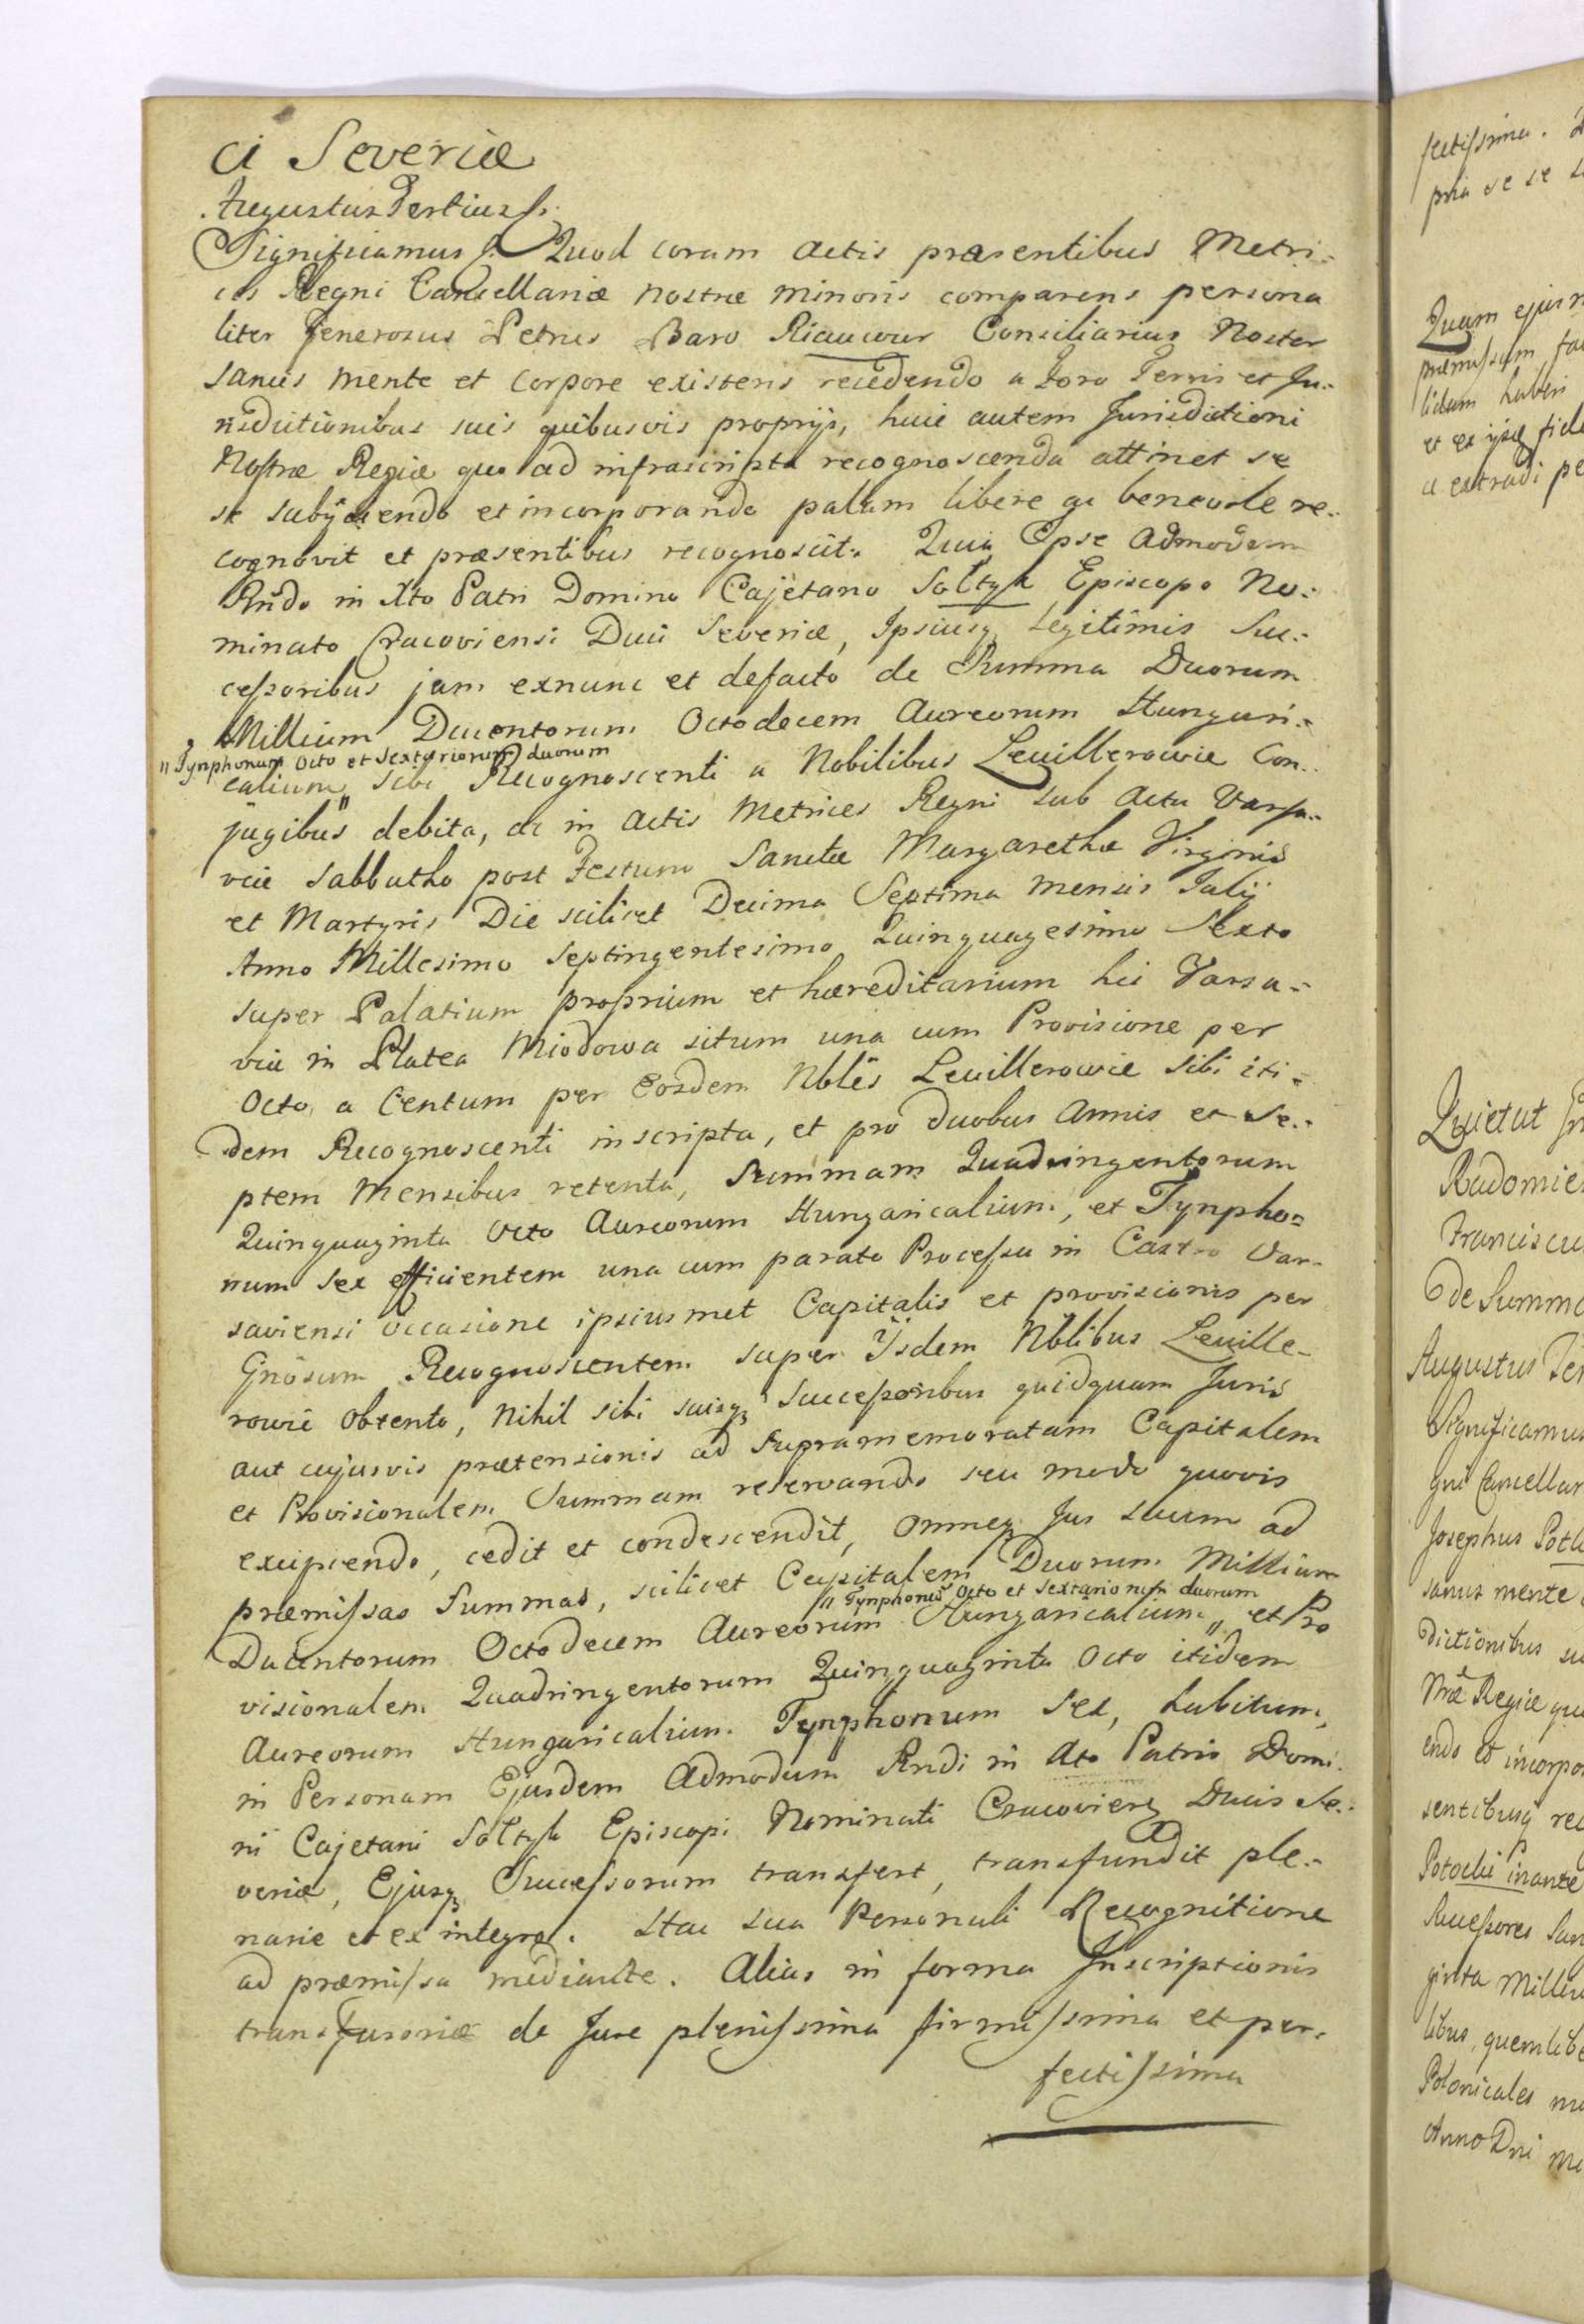 ci Severiæ
Augustus Tertius &.
Significamus &. Quod coram Actis præsentibus Metri-
ces Regni Cancellariæ Nostræ Minoris comparens persona
liter Generosus Petrus Baro Riaucour Consiliarius Noster
sanus mente et corpore existens recedendo a Foro Terris et Ju-
risdictionibus suis quibusvis proprijs, huic autem Jurisdictioni
Nostræ Regiæ quo ad infrascripta recognoscenda attinet se
se subijciendo et incorporando palam libere ac benevole re-
cognovit et præsentibus recognoscit. Quia Ipse Admodum
Rndo in Xto Patri Domino Cajetano Sołtyk Episcopo No-
minato Cracoviensi Duci Severiæ, Ipsiusq Legitimis Suc-
cessoribus jam exnunc et defacto de Summa Duorum
Millium Ducentorum Octodecem Aureorum Hungari-
" Tynphonum Octo et Sextarionum duorum
calium " sibi Recognoscenti a Nobilibus Leuillerowie Con-
jugibus debita, ac in Actis Metrices Regni sub Actu Varsa-
viæ Sabbatho post Festum Sanctæ Margarethæ Virginis
et Martyris Die scilicet Decima Septima Mensis Julij
Anno Millesimo Septingentesimo Quinquagesimo Sexto
super Palatium proprium et hæreditarium hic Varsa-
viæ in Platea Miodowa situm una cum Provisione per
Octo a Centum per Eosdem Nbles Leuillerowie sibi iti-
dem Recognoscenti inscripta, et pro duobus Annis et Se-
ptem Mensibus retenta, Summam Quadringentorum
Quinquaginta Octo Aureorum Hungaricalium, et Tynpho-
num Sex efficientem una cum parato Processu in Castro Var-
saviensi Occasione ipsiusmet Capitalis et provisionis per
Gnosum Recognoscentem super Ijsdem Nblibus Leuille-
rowie obtento, Nihil sibi suisq Successoribus quidquam Juris
aut cujusvis prætensionis ad supramemoratam Capitalem
et Provisionalem Summam reservando seu modo quovis
excipiendo, cedit et condescendit, Omneq Jus suum ad
præmissas Summas, scilicet Capitalem Duorum Millium
" Tynphonũ Octo et Sextarionum duorum
Ducentorum Octodecem Aureorum Hungaricalium " et Pro
visionalem Quadringentorum Quinquaginta Octo itidem
Aureorum Hungaricalium Tynphonum Sex, habitum,
in Personam Ejusdem Admodum Rndi in Xto Patris Domi-
ni Cajetani Sołtyk Episcopi Nominati Cracovien Ducis Se-
veriæ, Ejusq Successorum transfert, transfundit ple-
narie et ex integro. Hac sua Personali Recognitione
ad præmissa mediante. Alias in forma Inscriptionis
transfusoriæ de Jure plenissima firmissima et per-
fectissima
fectissima.
pria se se
Quam
præmissum
lidum haberi
et
extradi
Quietat
Radomie
Franciscu
de Summa
Augustus Ter
Significamus
gni Cancellar
Josephus Poto
sanus mente
dictionibus su
Nræ Regiæ qu
endo et incorpo
sentibusq rec
Potocki
Successores
ginta Milleni
libus, quemlibe
Polonicales
Anno Dni